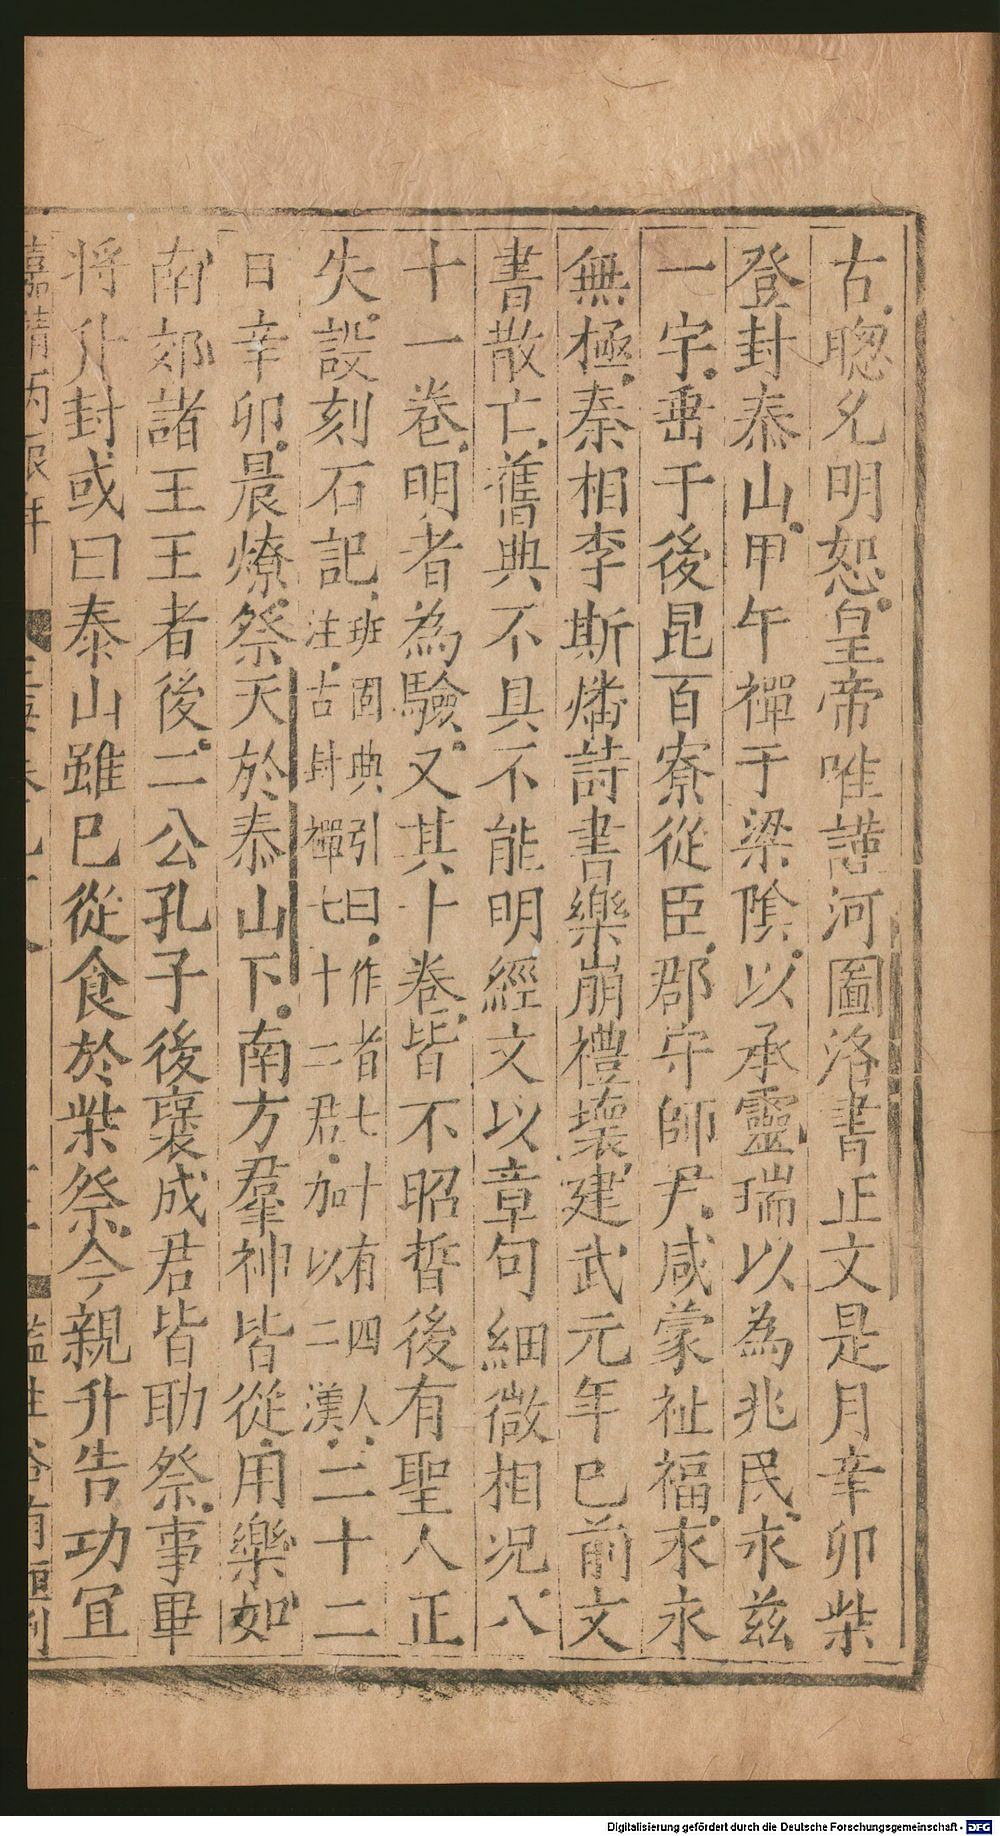 古聰允明恕皇帝唯謹河圖洛書正文是月辛卯柴
登封泰山甲午禪于梁隂以承靈瑞以為兆民永兹
一宇垂于後昆百寮從臣郡守師尹咸蒙祉福永永
無極秦相李斯燔詩書樂崩禮壞建武元年巳前文
書散亡舊典不具不能明經文以章句細微相況八
十一卷明者為驗又其十卷皆不昭晢後有聖人正
失誤刻石記班固典引曰作者七十有四人注古封禪七十二君加以二漢二十二
日辛卯晨燎祭天於泰山下南方羣神皆從用樂如
南郊諸王王者後二公孔子後襃成君皆助祭事畢
將升封或曰泰山雖巳從食於柴祭今親升告功冝
嘉靖丙辰年
監生
Digitalisierung gefördert durch die Deutsche Forschungsgemeinschaft - DFG